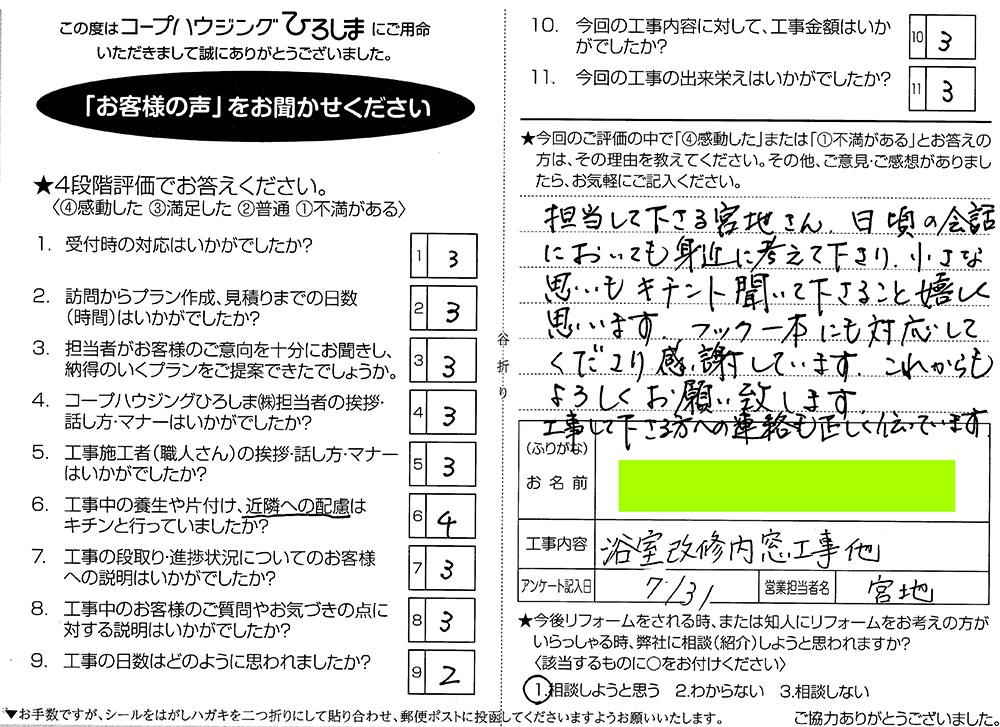 この度はコープハウジングひろしまにご用命
いただきまして誠にありがとうございました。
「お客様の声」をお聞かせください
★4段階評価でお答えください。
〈④感動した ③満足した ②普通 ①不満がある〉
1. 受付時の対応はいかがでしたか?
1 3
2. 訪問からプラン作成、見積りまでの日数
(時間)はいかがでしたか?
2 3
3. 担当者がお客様のご意向を十分にお聞きし、
納得のいくプランをご提案できたでしょうか。
3 3
4. コープハウジングひろしま㈱担当者の挨拶・
話し方・マナーはいかがでしたか?
4 3
5. 工事施工者(職人さん)の挨拶・話し方・マナー
はいかがでしたか?
5 3
6. 工事中の養生や片付け、近隣への配慮は
キチンと行っていましたか?
6 4
7. 工事の段取り・進捗状況についてのお客様
への説明はいかがでしたか?
7 3
8. 工事中のお客様のご質問やお気づきの点に
対する説明はいかがでしたか?
8 3
9. 工事の日数はどのように思われましたか?
9 2
▼お手数ですが、シールをはがしハガキを二つ折りにして貼り合わせ、郵便ポストに投函してくださいますようお願いいたします。
谷折り
10. 今回の工事内容に対して、工事金額はいか
がでしたか?
10 3
11. 今回の工事の出来栄えはいかがでしたか?
11 3
★今回のご評価の中で「④感動した」または「①不満がある」とお答えの
方は、その理由を教えてください。その他、ご意見・ご感想がありまし
たら、お気軽にご記入ください。
担当して下さる宮地さん、日頃の会話
においても身近に考えて下さり、小さな
思いもキチント聞いて下さること嬉しく
思います。フック一本にも対応して
くださり感謝しています。これからも
よろしくお願い致します。
工事して下さる方への連絡も正しく伝っています。
(ふりがな)
お名前
工事内容 浴室改修内窓工事他
アンケート記入日 7/31 営業担当者名 宮地
★今後リフォームをされる時、または知人にリフォームをお考えの方が
いらっしゃる時、弊社に相談(紹介)しようと思われますか?
〈該当するものに○をお付けください〉
1.相談しようと思う 2.わからない 3.相談しない
ご協力ありがとうございました。